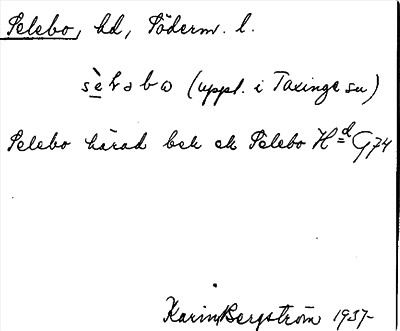 Selebo, hd, Söderm. l.
sèləbo (uppl. i Taxinge sn)
Selebo härad bek ek Selebo Hd G74
Karin Bergström 1937